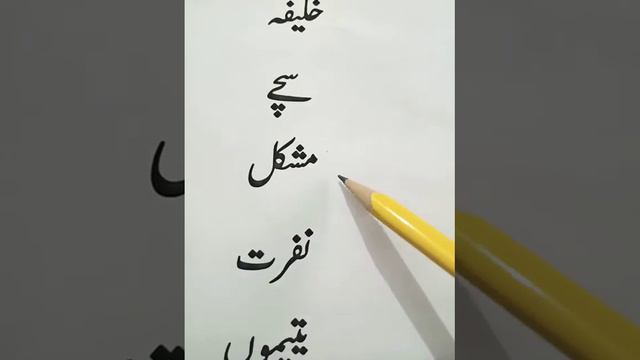 خلیفہ
سچے
مشکل
نفرت
یتیموں